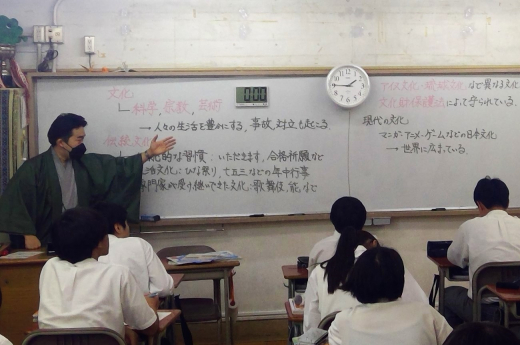 文化
科学, 宗教, 芸術
→ 人々の生活を豊かにする, 事故, 対立も起こる
伝統文化
的な習慣：いただきます, 合格祈願など
文化：ひな祭り, 七五三などの年中行事
専門家が受け継いできた文化：歌舞伎, 能など
0:00
アイヌ文化・琉球文化など異なる文化
文化財保護法によって守られている.
現代の文化
マンガ・アニメ・ゲームなどの日本文化
→ 世界に広まっている